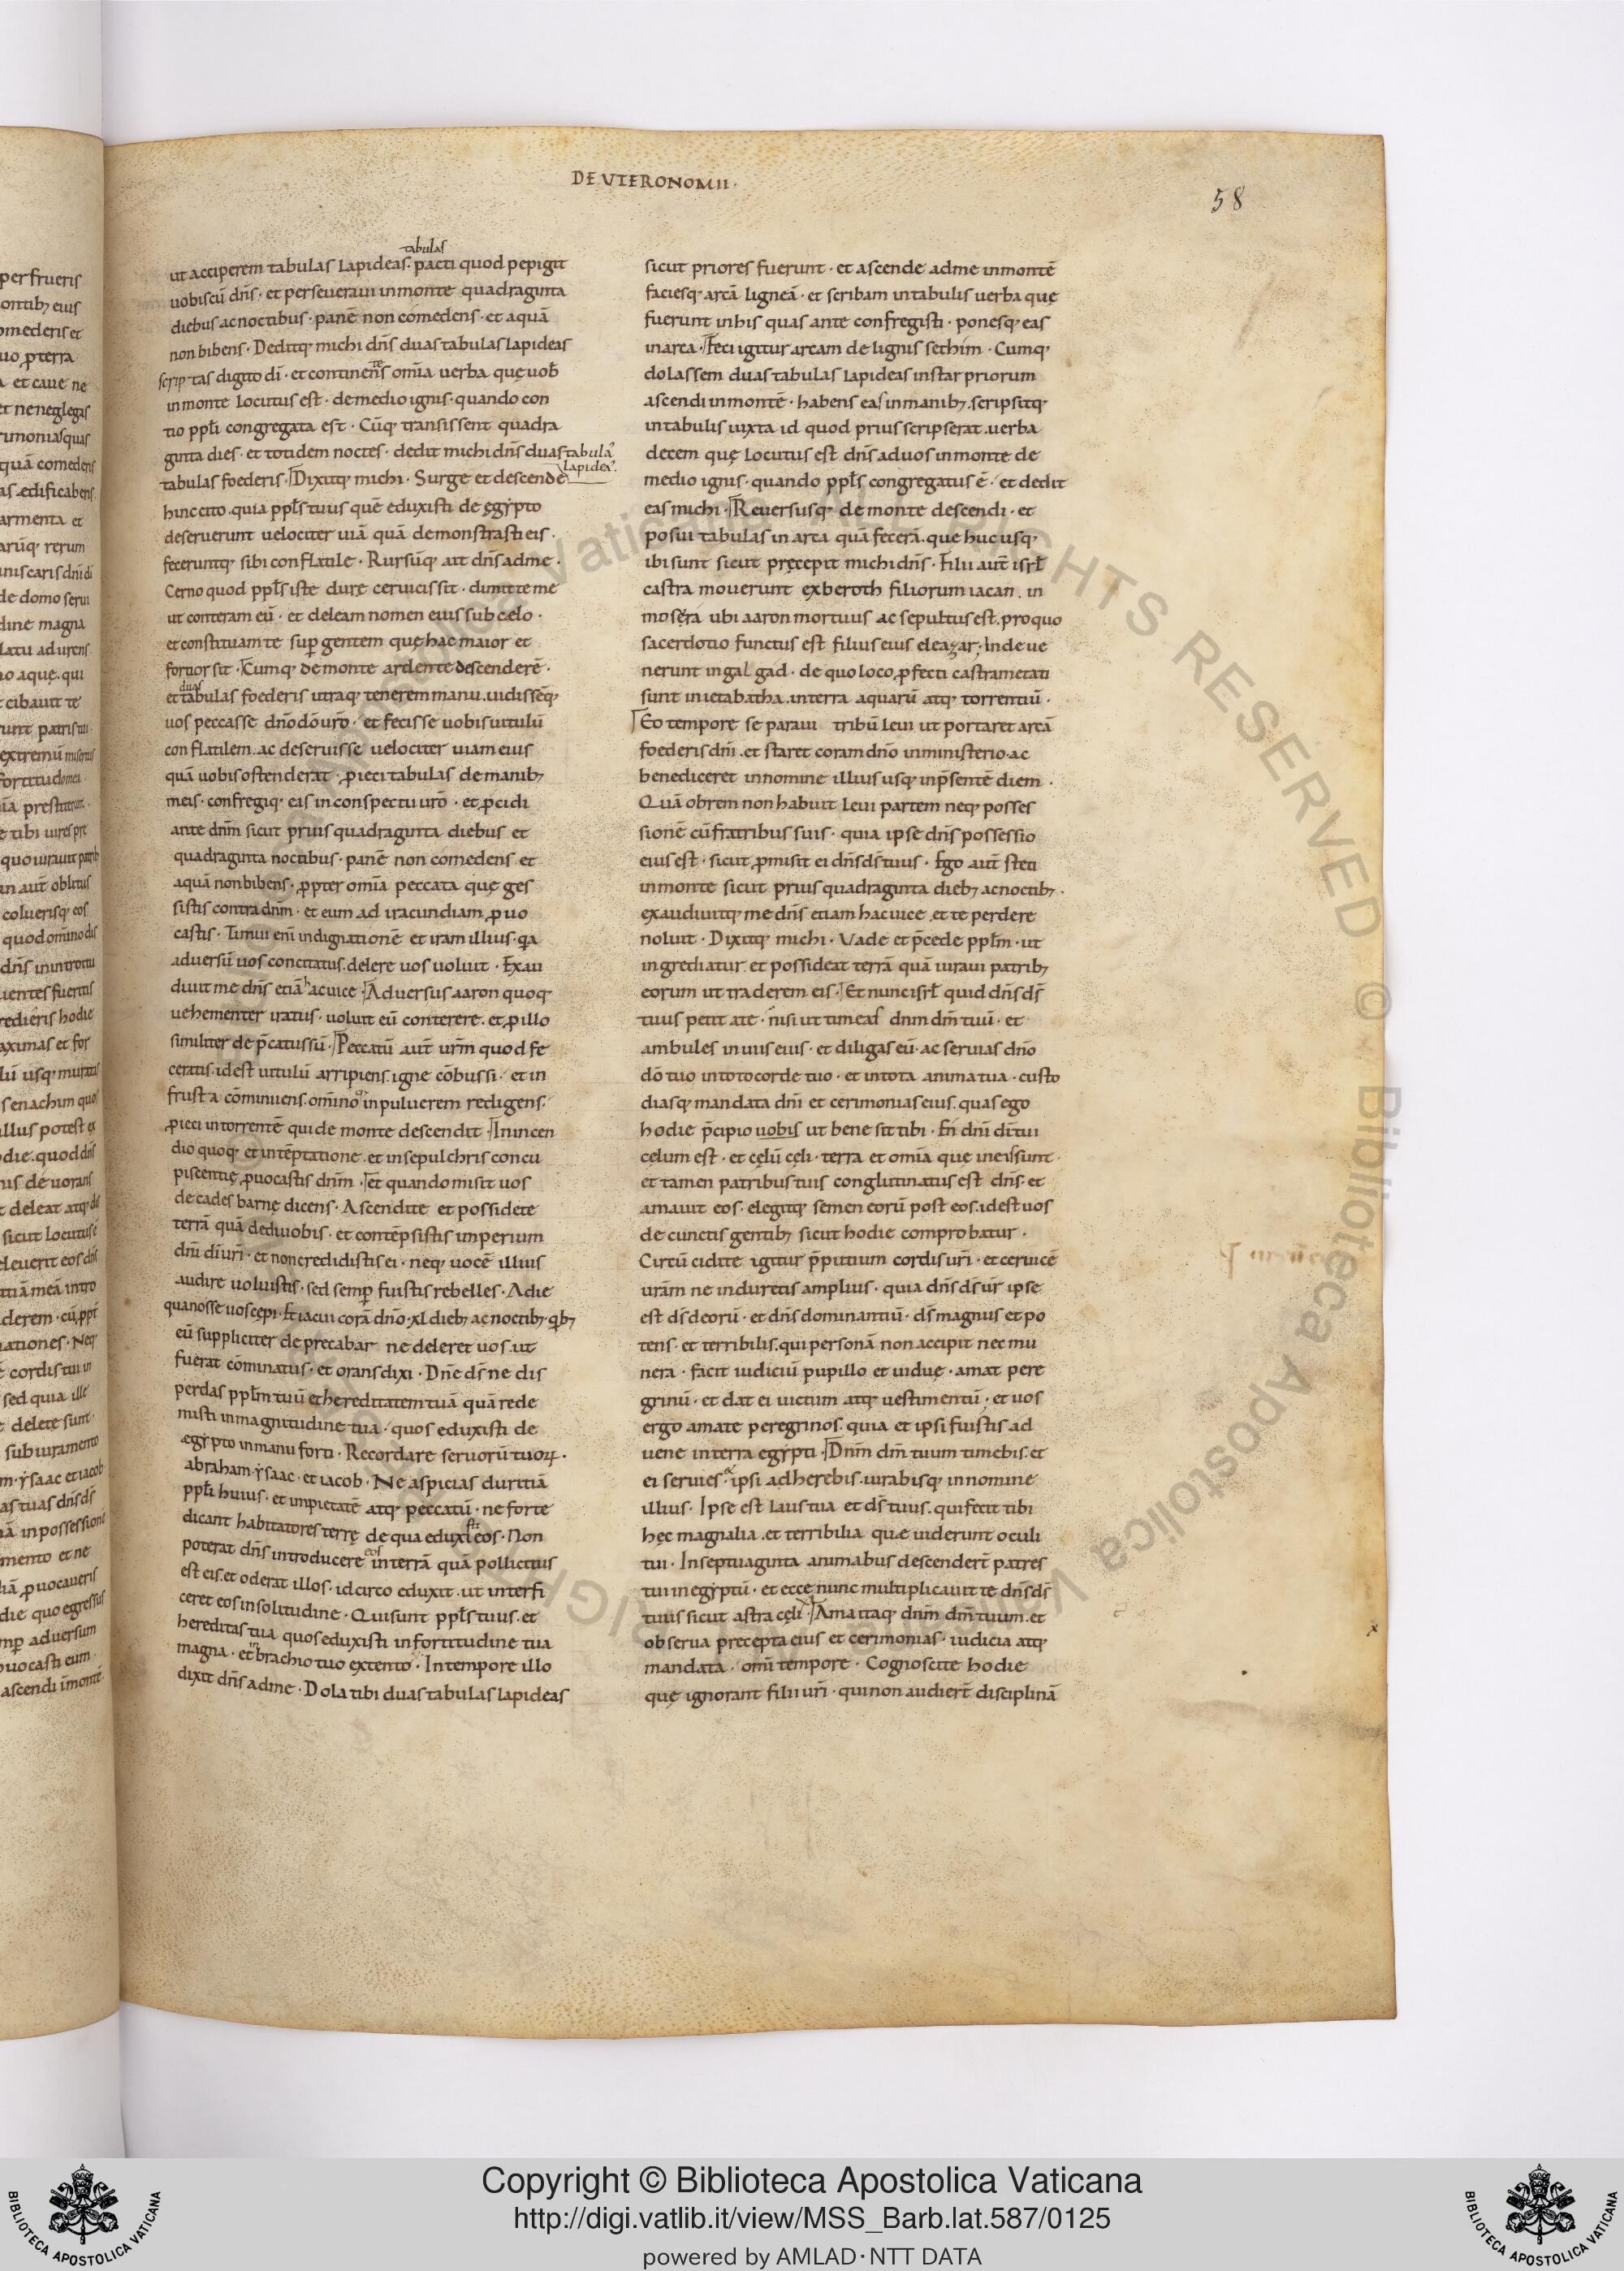 DEUTERONOMII·
58
tabulas
ut acciperem tabulas lapideas· pacti quod pepigit
uobiscū dn̄s· et perseueraui inmonte quadraginta
diebus acnoctibus· panē non comedens· et aquā
non bibens· Deditq; michi dn̄s duas tabulas lapideas
scriptas digito dī· et continen̄s om̄ia uerba que uob̄
inmonte locutus est· demedio ignis· quando con
tio ppl̄i congregata est· Cūq; transissent quadra
ginta dies· et totidem noctes· dedit michi dn̄s duas tabulas
lapideas·
tabulas foederis· Dixitq; michi· Surge et descende
hinc cito· quia ppl̄s tuus quē eduxisti de egypto
deseruerunt uelociter uiā quā demonstrasti eis·
feceruntq; sibi conflatile· Rursūq; ait dn̄s adme·
Cerno quod ppl̄s iste dure ceruicis sit· dimitte me
ut conteram eū· et deleam nomen eius sub cęlo·
et constituam te sup̄ gentem quę hac maior et
fortior sit· Cumq; demonte ardente descenderē·
duas
et tabulas foederis utraq; tenerem manu· uidissēq;
uos peccasse dn̄o dō ur̄o· et fecisse uobis uitulū
conflatilem· ac deseruisse uelociter uiam eius
quā uobis ostenderat· ꝓieci tabulas de manib;
meis· confregiq; eas in conspectu ur̄o· et ꝓcidi
ante dn̄m sicut prius quadraginta diebus et
quadraginta noctibus· panē non comedens et
aquā non bibens· ꝓpter om̄ia peccata quę ges
sistis contra dn̄m· et eum ad iracundiam ꝓuo
castis· Timui eni indignationē et iram illius· qa
aduersū uos concitatus· delere uos uoluit· Exau
diuit me dn̄s etiā hac uice· Aduersus aaron quoq;
uehementer iratus· uoluit eū conterere· et ꝓ illo
similiter dep̄catus sū· Peccatū aut̄ ur̄m quod fe
ceratis· idest uitulū arripiens· igne cōbussi· et in
frusta cōminuens· om̄inoq; in puluerem redigens·
ꝓieci intorrentē qui de monte descendit· In incen
dio quoq; et intēptatione· et in sepulchris concu
piscentię ꝓuocastis dn̄m· Et quando misit uos
de cades barne dicens· Ascendite et possidete
terrā quā dedi uobis· et contēpsistis imperium
dn̄i dī ur̄i· et non credidistis ei· neq; uocē illius
audire uoluistis· sed semp̄ fuistis rebelles· A die
qua nosse uos cępi· Et iacui corā dn̄o· xl dieb; ac noctib;· qb;
eū suppliciter deprecabar ne deleret uos· ut
fuerat cōminatus· et orans dixi· Dn̄e ds̄ ne dis
perdas ppl̄m tuū et hereditatem tuā quā rede
misti inmagnitudine tua· quos eduxisti de
ægypto inmanu forti· Recordare seruorū tuoꝝ·
abraham· ysaac· et iacob· Ne aspicias duritiā
ppl̄i huius· et impietatē atq; peccatū· ne forte
dicant habitatores terrę de qua eduxisti eos· Non
poterat dn̄s introducere eos interrā quā pollicitus
est eis· et oderat illos· idcirco eduxit· ut interfi
ceret eos insolitudine· Qui sunt ppl̄s tuus· et
hereditas tua quos eduxisti infortitudine tua
magna· et in brachio tuo extento· In tempore illo
dixit dn̄s adme· Dola tibi duas tabulas lapideas
sicut priores fuerunt· et ascende adme inmontē
faciesq; arcā ligneā· et scribam intabulis uerba quę
fuerunt inhis quas ante confregisti· ponesq; eas
inarca· Feci igitur arcam de lignis sethim· Cumq;
dolassem duas tabulas lapideas instar priorum
ascendi inmontē· habens eas inmanib;· scripsitq;
intabulis iuxta id quod prius scripserat· uerba
decem quę locutus est dn̄s ad uos inmonte de
medio ignis· quando ppl̄s congregatus ē· et dedit
eas michi· Reuersusq; de monte descendi· et
posui tabulas in arca quā fecerā· que huc usq;
ibi sunt sicut pręcepit michi dn̄s· Filii aut̄ isrl̄
castra mouerunt ex beroth filiorum iacan· in
mosera ubi aaron mortuus ac sepultus est· pro quo
sacerdotio functus est filius eius eleazar· Inde ue
nerunt in galgad· de quo loco ꝓfecti castrametati
sunt inietabatha· interra aquarū atq; torrentiū·
Eo tempore separaui tribū leui ut portaret arcā
foederis dn̄i· et staret coram dn̄o inministerio· ac
benediceret innomine illius usq; inp̄sentē diem·
Quā obrem non habuit leui partem neq; posses
sionē cū fratribus suis· quia ipse dn̄s possessio
eius est· sicut ꝓmisit ei dn̄s ds̄ tuus· Ego aut̄ steti
inmonte sicut prius quadraginta dieb; ac noctib;·
exaudiuitq; me dn̄s etiam hac uice· et te perdere
noluit· Dixitq; michi· Vade et p̄cede ppl̄m· ut
ingrediatur et possideat terrā quā iuraui patrib;
eorum ut traderem eis· Et nunc isrl̄ quid dn̄s ds̄
tuus petit a te· nisi ut timeas dn̄m dm̄ tuū· et
ambules in uiis eius· et diligas eū· ac seruias dn̄o
dō tuo intoto corde tuo· et intota anima tua· custo
diasq; mandata dn̄i et cerimonias eius· quas ego
hodie p̄cipio uobis ut bene sit tibi· En dn̄i dī tui
cęlum est· et cęlū cęli· terra et om̄ia quę in eis sunt·
et tamen patribus tuis conglutinatus est dn̄s· et
amauit eos· elegitq; semen eorū post eos· idest uos
de cunctis gentib; sicut hodie comprobatur·
Circūcidite igitur p̄putium cordis ur̄i· et ceruicē
ur̄am ne induretis amplius· quia dn̄s ds̄ ur̄ ipse
est ds̄ deorū· et dn̄s dominantiū· ds̄ magnus et po
tens· et terribilis· qui personā non accipit nec mu
nera· facit iudiciū pupillo et uiduę· amat pere
grinū· et dat ei uictum atq; uestimentū· et uos
ergo amate peregrinos· quia et ipsi fuistis ad
uene interra egypti· Dn̄m dm̄ tuum timebis· et
ei seruies· & ipsi adherebis· iurabisq; innomine
illius· Ipse est laus tua et ds̄ tuus· qui fecit tibi
hęc magnalia· et terribilia quæ uiderunt oculi
tui· In septuaginta animabus descendert̄ patres
tui inegyptū· et ecce nunc multiplicauit te dn̄s ds̄
tuus sicut astra cęli· Ama itaq; dn̄m dm̄ tuum· et
obserua precepta eius et cerimonias· iudicia atq;
mandata· om̄i tempore· Cognoscite hodie
quę ignorant filii ur̄i· qui non audiert̄ disciplinā
Copyright © Biblioteca Apostolica Vaticana
http://digi.vatlib.it/view/MSS_Barb.lat.587/0125
powered by AMLAD·NTT DATA